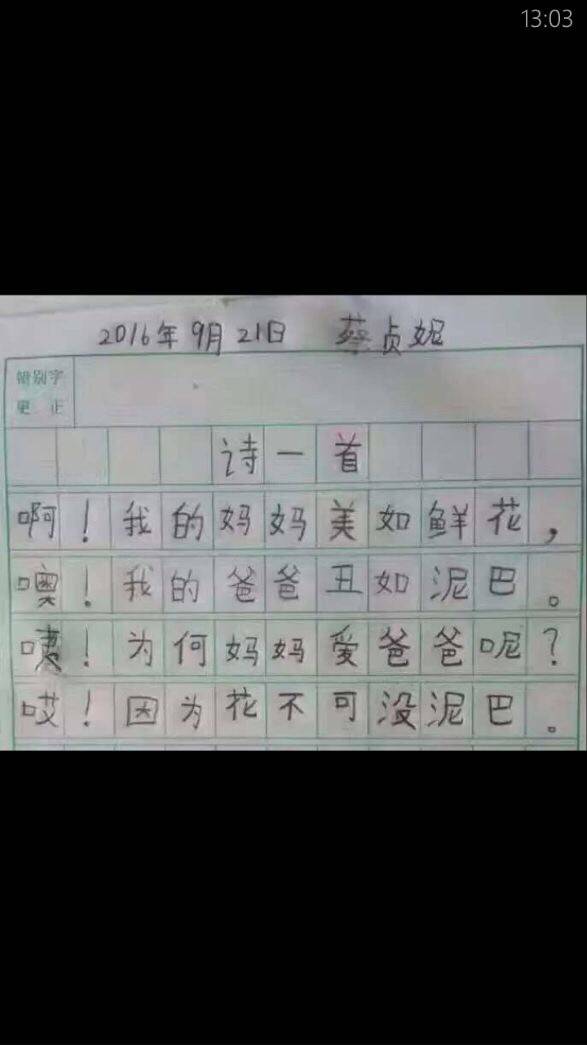 13:03
2016年9月21日 蔡贞妮
错别字
更 正
诗一首
啊！我的妈妈美如鲜花，
噢！我的爸爸丑如泥巴。
咦！为何妈妈爱爸爸呢？
哎！因为花不可没泥巴。